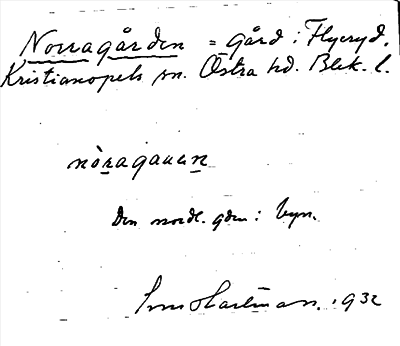 Norragården = gård i Flyeryd,
Kristianopels sn. Östra hd. Blek. l.
nòragauen
Den nordl. gden i byn.
Sven Hartman. 1932